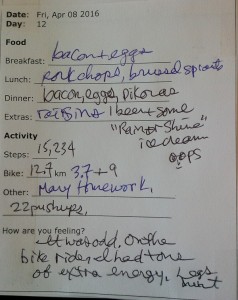 Date: Fri, Apr 08 2016
Day: 12
Food
Breakfast: bacon + eggs
Lunch: Pork chops, brussel sprouts
Dinner: bacon, eggs,
Extras: raisins 1 beer + some
"Rain or Shine"
ice cream
oops
Activity
Steps: 15,234
Bike: 12.7 km 3.7 + 9
Other: Many Homework,
22 pushups,
How are you feeling?
It was odd. On the
bike rides I had tons
of extra energy. Legs